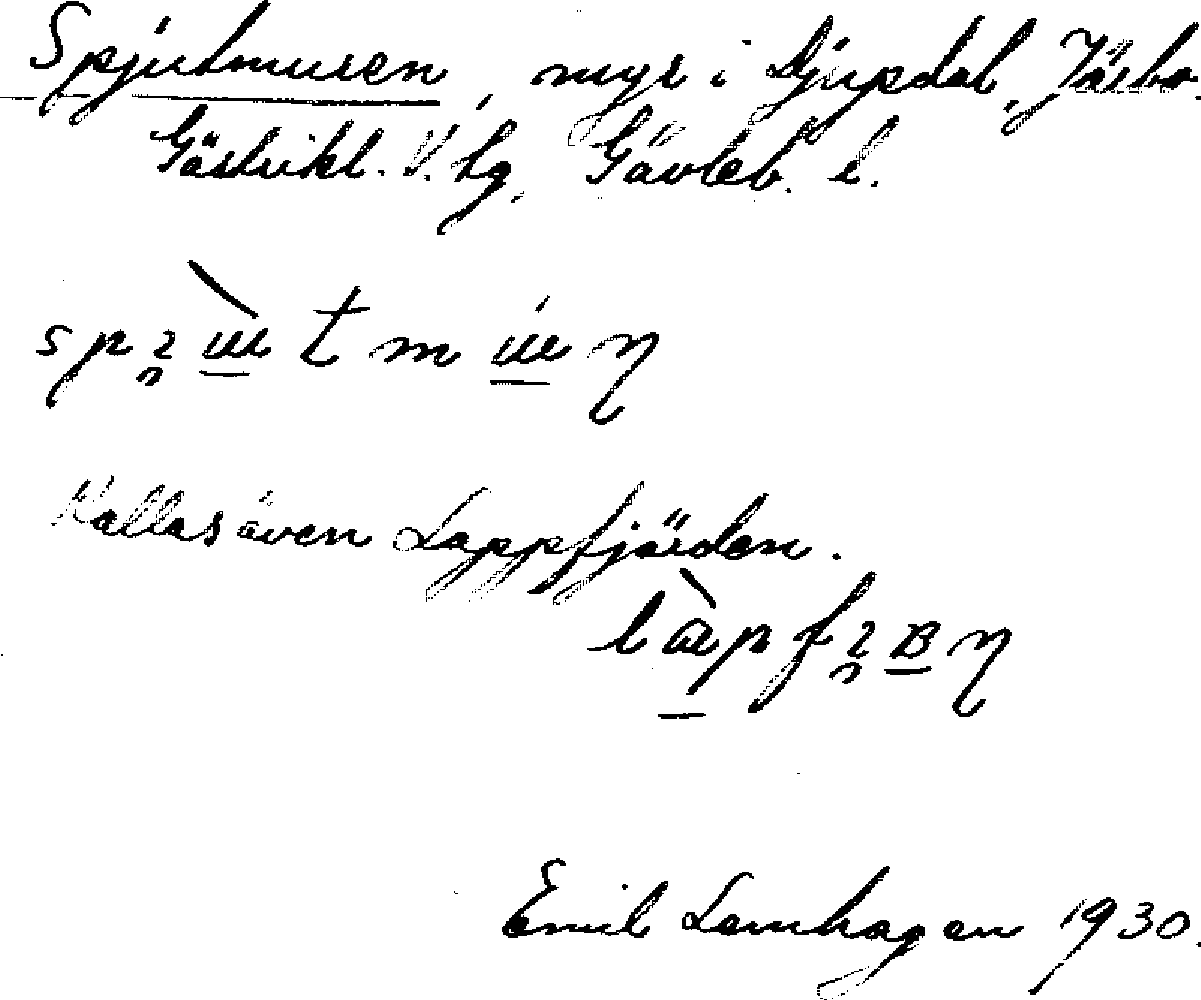 Spjutmuren, myr i Djupdal, Järbo.
Gästrikl. V. tg. Gävleb. l.
Kallas även Lappfjärden.
Emil Lamhagen 1930.